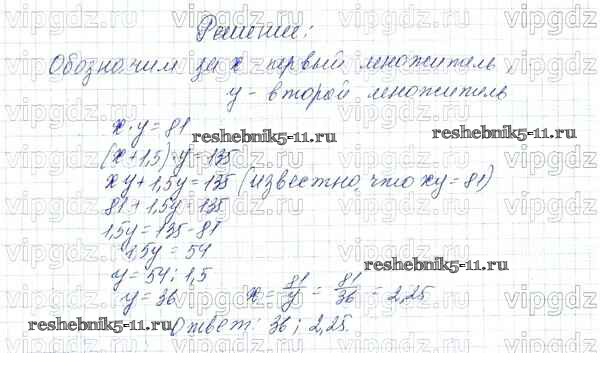 Решение:
Обозначим за x первый множитель,
y - второй множитель
x·y=81
(x+1,5)·y=135
xy+1,5y=135 (известно, что xy=81)
81+1,5y=135
1,5y=135-81
1,5y=54
y=54:1,5
y=36 x=81/y=81/36=2,25
Ответ: 36; 2,25.
reshebnik5-11.ru.
reshebnik5-11.ru.
reshebnik5-11.ru.
reshebnik5-11.ru.
reshebnik5-11.ru.
vipgdz.ru